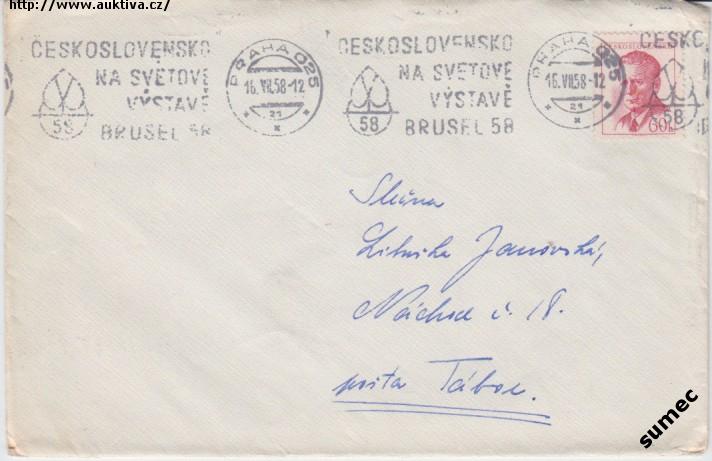 http://www.auktiva.cz/
ČESKOSLOVENSKO
NA SVĚTOVÉ
VÝSTAVĚ
BRUSEL 58
58
PRAHA 025
16.VII.58-12
21
ČESKOSLOVENSKO
NA SVĚTOVÉ
VÝSTAVĚ
BRUSEL 58
58
PRAHA 025
16.VII.58-12
21
ČESKO
58
60
Slečna
Libuška Janovská,
Náchod č. 18.
pošta Tábor.
sumec